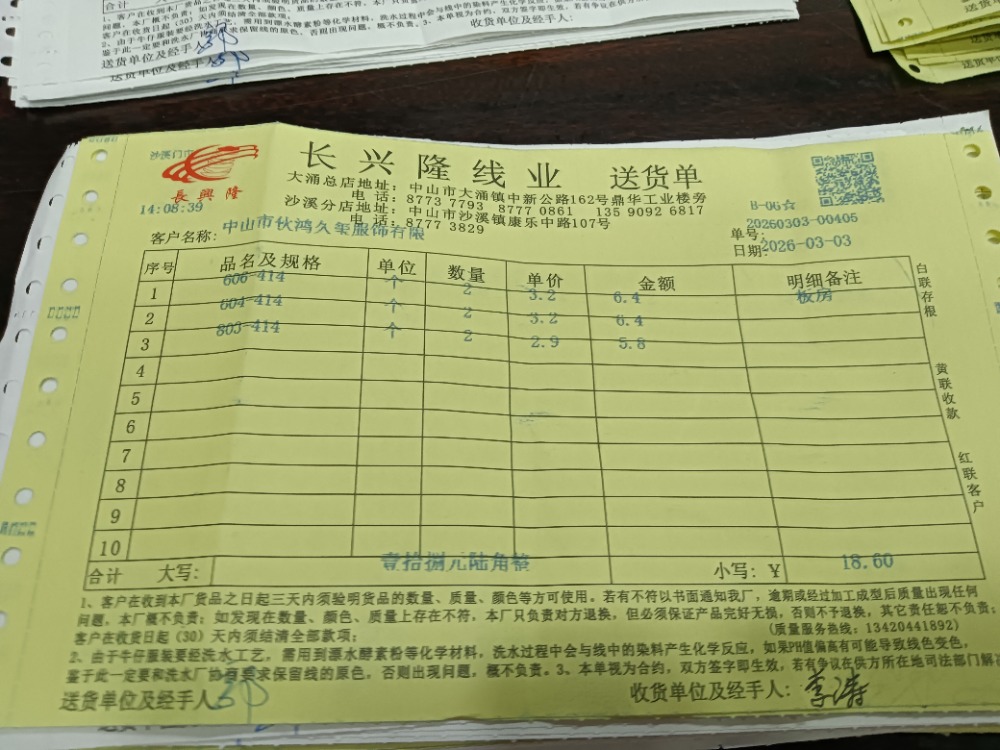 合计 大写:
送货单位及经手人
收货单位及经手人:
送货单位及经手人
沙溪门市
長興隆
长兴隆线业 送货单
大涌总店地址: 中山市大涌镇中新公路162号鼎华工业楼旁
电 话: 8773 7793 8777 0861 135 9092 6817
沙溪分店地址: 中山市沙溪镇康乐中路107号
电 话: 8777 3829
14:08:39
B-06☆
客户名称: 中山市伙鸿久玺服饰有限
单号: 20260303-00405
日期: 2026-03-03
序号 品名及规格 单位 数量 单价 金额 明细备注
1 606-414 个 2 3.2 6.4 板房
2 604-414 个 2 3.2 6.4
3 803-414 个 2 2.9 5.8
4
5
6
7
8
9
10
合计 大写: 壹拾捌元陆角整 小写: ¥ 18.60
白联存根
黄联收款
红联客户
1、客户在收到本厂货品之日起三天内须验明货品的数量、质量、颜色等方可使用。若有不符以书面通知我厂,逾期或经过加工成型后质量出现任何
问题,本厂概不负责;如发现在数量、颜色、质量上存在不符,本厂只负责对方退换,但必须保证产品完好无损,否则不予退换,其它责任恕不负责;
客户在收货日起(30)天内须结清全部款项;
(质量服务热线: 13420441892)
2、由于牛仔服装要经洗水工艺,需用到漂水酵素粉等化学材料,洗水过程中会与线中的染料产生化学反应,如果PH值偏高有可能导致线色变色,
鉴于此一定要和洗水厂协商要求保留线的原色,否则出现问题,概不负责。3、本单视为合约,双方签字即生效,若有争议在供方所在地司法部门解
送货单位及经手人
收货单位及经手人: 李涛